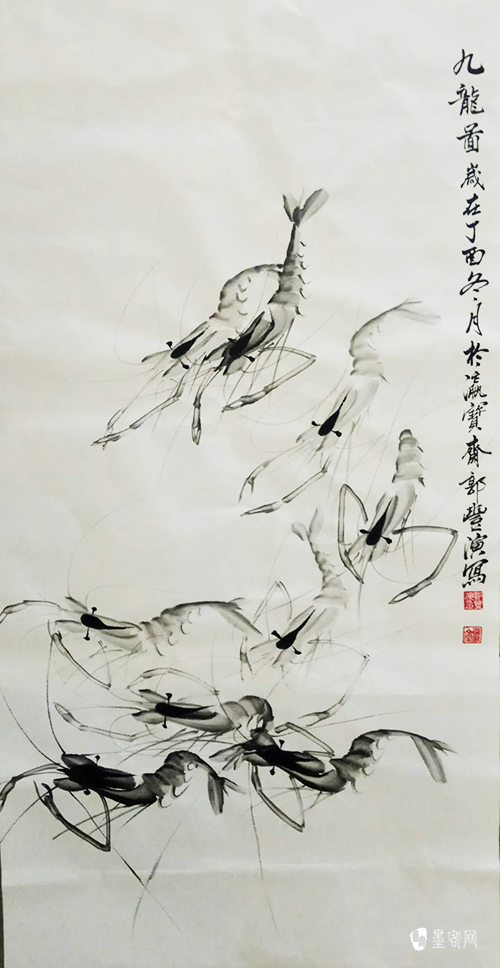 九龍啚歲在丁酉冬月於瀛寶齋郭豐演寫
墨客网